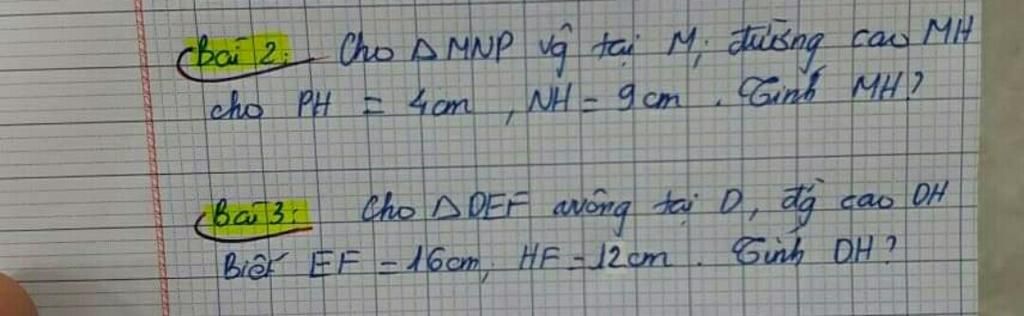 Bài 2: Cho △MNP vg tại M; đường cao MH
cho PH = 4cm, NH = 9cm. Tính MH?
Bài 3: Cho △DEF vuông tại D, đg cao DH
Biết EF = 16cm; HF = 12cm. Tính DH?